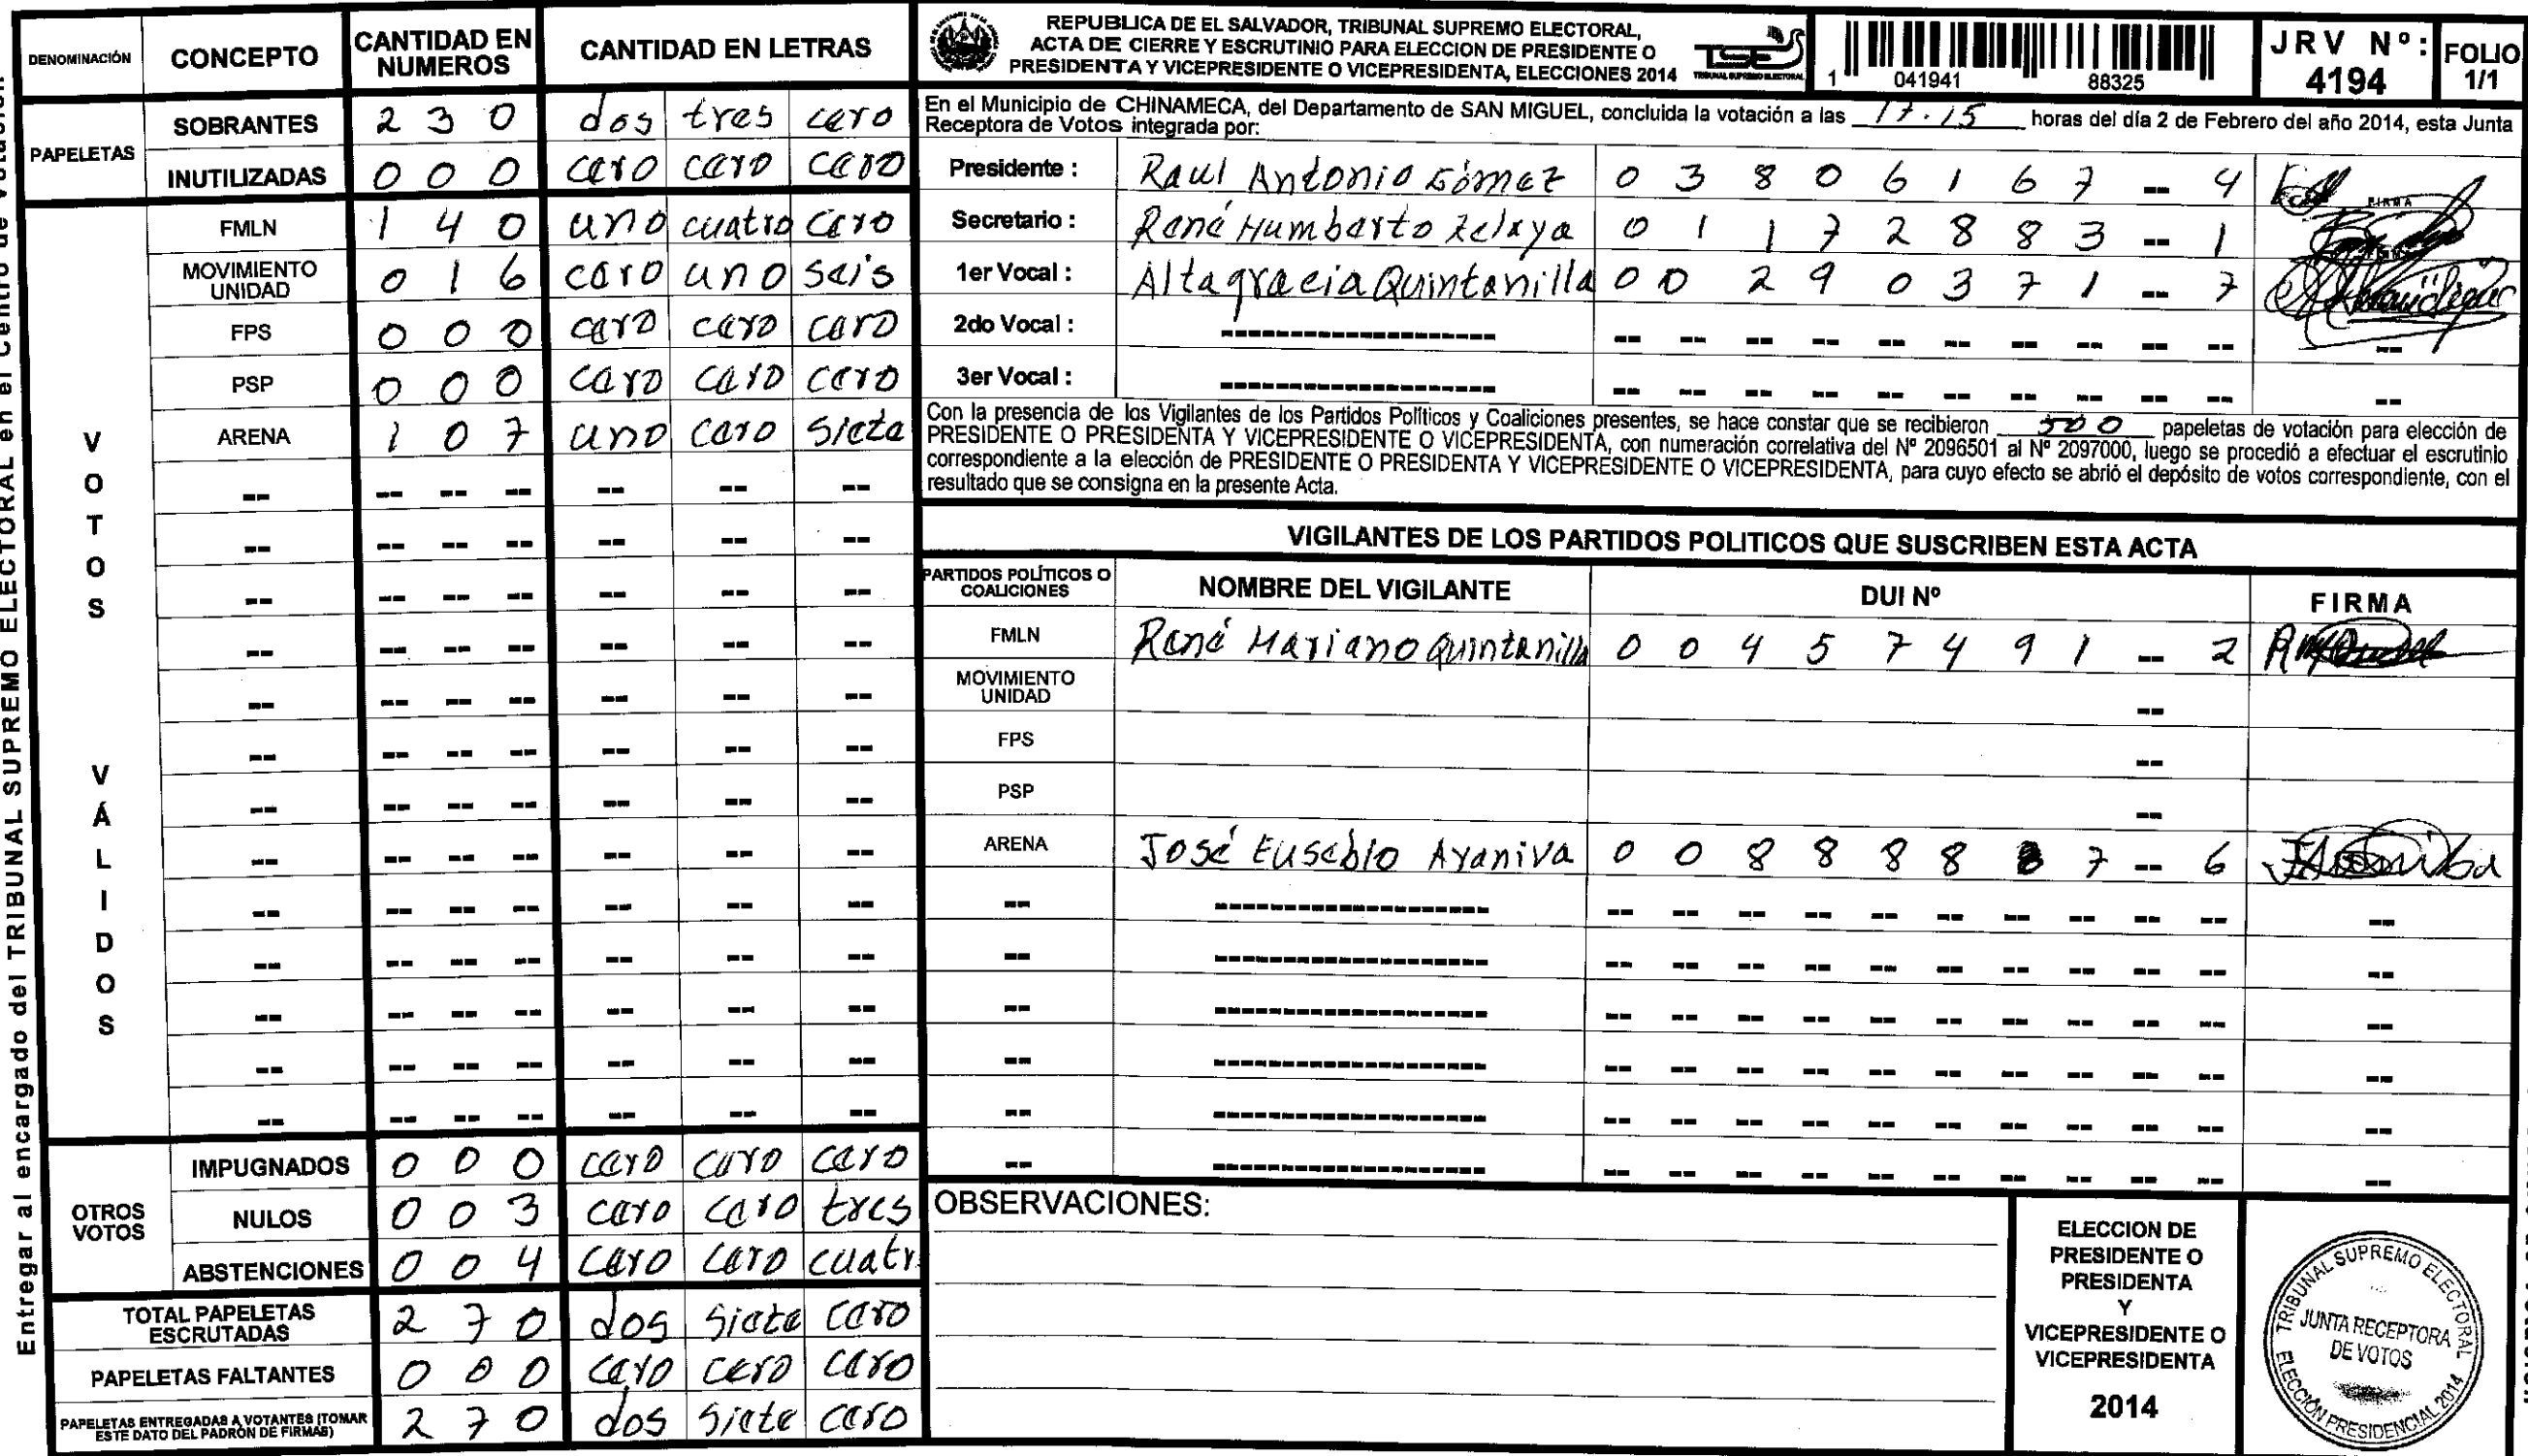 Entregar al encargado del TRIBUNAL SUPREMO ELECTORAL en el Centro de Votación
DENOMINACIÓN CONCEPTO CANTIDAD EN NUMEROS CANTIDAD EN LETRAS
PAPELETAS
SOBRANTES 2 3 0 dos tres cero
INUTILIZADAS 0 0 0 cero cero cero
VOTOS VÁLIDOS
FMLN 1 4 0 uno cuatro cero
MOVIMIENTO UNIDAD 0 1 6 cero uno seis
FPS 0 0 0 cero cero cero
PSP 0 0 0 cero cero cero
ARENA 1 0 7 uno cero siete
OTROS VOTOS
IMPUGNADOS 0 0 0 cero cero cero
NULOS 0 0 3 cero cero tres
ABSTENCIONES 0 0 4 cero cero cuatr
TOTAL PAPELETAS ESCRUTADAS 2 7 0 dos siete cero
PAPELETAS FALTANTES 0 0 0 cero cero cero
PAPELETAS ENTREGADAS A VOTANTES (TOMAR ESTE DATO DEL PADRÓN DE FIRMAS) 2 7 0 dos siete cero
REPUBLICA DE EL SALVADOR, TRIBUNAL SUPREMO ELECTORAL,
ACTA DE CIERRE Y ESCRUTINIO PARA ELECCION DE PRESIDENTE O
PRESIDENTA Y VICEPRESIDENTE O VICEPRESIDENTA, ELECCIONES 2014
TSE
TRIBUNAL SUPREMO ELECTORAL
1 041941 88325
JRV Nº: 4194
FOLIO 1/1
En el Municipio de CHINAMECA, del Departamento de SAN MIGUEL, concluida la votación a las 17.15 horas del día 2 de Febrero del año 2014, esta Junta
Receptora de Votos integrada por:
Presidente : Raul Antonio Gómez 0 3 8 0 6 1 6 7 -- 4
FIRMA
Secretario : René Humberto Zelaya 0 1 1 7 2 8 8 3 -- 1
1er Vocal : Altagracia Quintanilla 0 0 2 9 0 3 7 1 -- 7
2do Vocal :
3er Vocal :
Con la presencia de los Vigilantes de los Partidos Políticos y Coaliciones presentes, se hace constar que se recibieron 500 papeletas de votación para elección de
PRESIDENTE O PRESIDENTA Y VICEPRESIDENTE O VICEPRESIDENTA, con numeración correlativa del Nº 2096501 al Nº 2097000, luego se procedió a efectuar el escrutinio
correspondiente a la elección de PRESIDENTE O PRESIDENTA Y VICEPRESIDENTE O VICEPRESIDENTA, para cuyo efecto se abrió el depósito de votos correspondiente, con el
resultado que se consigna en la presente Acta.
VIGILANTES DE LOS PARTIDOS POLITICOS QUE SUSCRIBEN ESTA ACTA
PARTIDOS POLÍTICOS O COALICIONES NOMBRE DEL VIGILANTE DUI Nº FIRMA
FMLN René Mariano Quintanilla 0 0 4 5 7 4 9 1 -- 2
MOVIMIENTO UNIDAD --
FPS --
PSP --
ARENA José Eusebio Ayaniva 0 0 8 8 8 8 8 7 -- 6
OBSERVACIONES:
ELECCION DE
PRESIDENTE O
PRESIDENTA
Y
VICEPRESIDENTE O
VICEPRESIDENTA
2014
TRIBUNAL SUPREMO ELECTORAL
JUNTA RECEPTORA
DE VOTOS
ELECCIÓN PRESIDENCIAL 2014